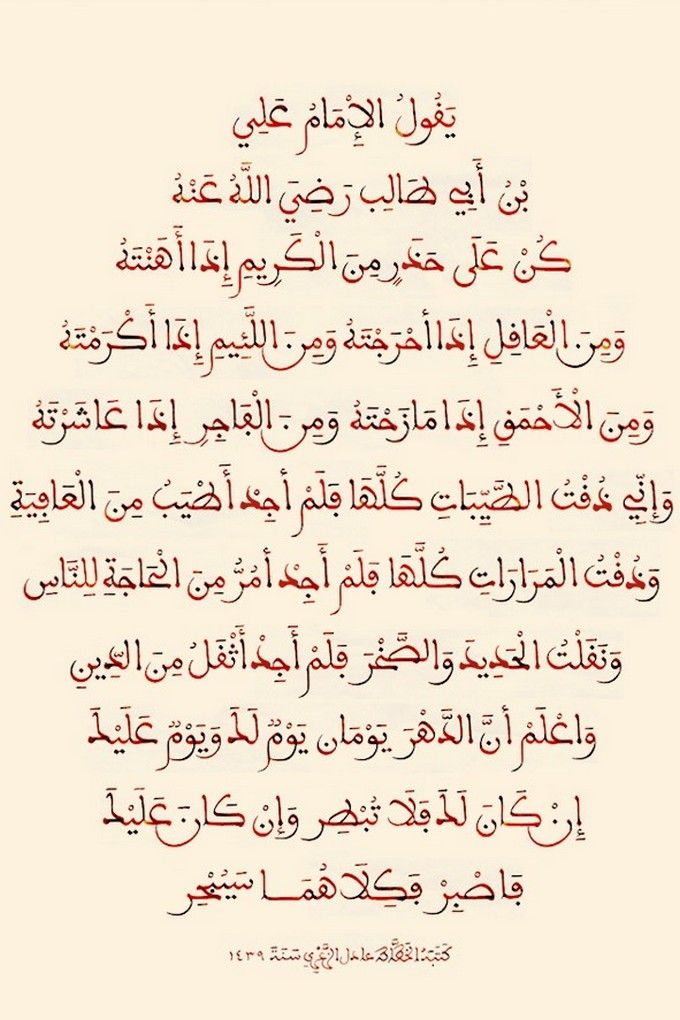 يَقُولُ الإِمَامُ عَلِي
بْنُ أَبِي طَالِب رَضِيَ اللَّهُ عَنْهُ
كُنْ عَلَى حَذَرٍ مِنَ الْكَرِيمِ إِذَا أَهَنْتَهُ
وَمِنَ الْعَاقِلِ إِذَا أحْرَجْتَهُ وَمِنَ اللَّئِيمِ إِذَا أَكْرَمْتَهُ
وَمِنَ الْأَحْمَقِ إِذَا مَازَحْتَهُ وَمِنَ الْفَاجِرِ إِذَا عَاشَرْتَهُ
وَإِنِّي ذُقْتُ الطَّيِّبَاتِ كُلَّهَا فَلَمْ أجِدْ أَطْيَبُ مِنَ الْعَافِيَةِ
وَذُقْتُ الْمَرَارَاتِ كُلَّهَا فَلَمْ أَجِدْ أمُرُّ مِنَ الْحَاجَةِ لِلنَّاسِ
وَنَقَلْتُ الْحَدِيدَ وَالصَّخْرَ فَلَمْ أَجِدْ أَثْقَلُ مِنَ الدِّينِ
وَاعْلَمْ أنَّ الدَّهْرَ يَوْمَان يَوْمٌ لَكَ وَيَوْمٌ عَلَيْكَ
إِنْ كَانَ لَكَ فَلَا تُبْطِر وَإِنْ كَانَ عَلَيْكَ
فَاصْبِرْ فَكِلَاهُمَا
كَتَبَهُ عادل سَنَةَ ١٤٣٩